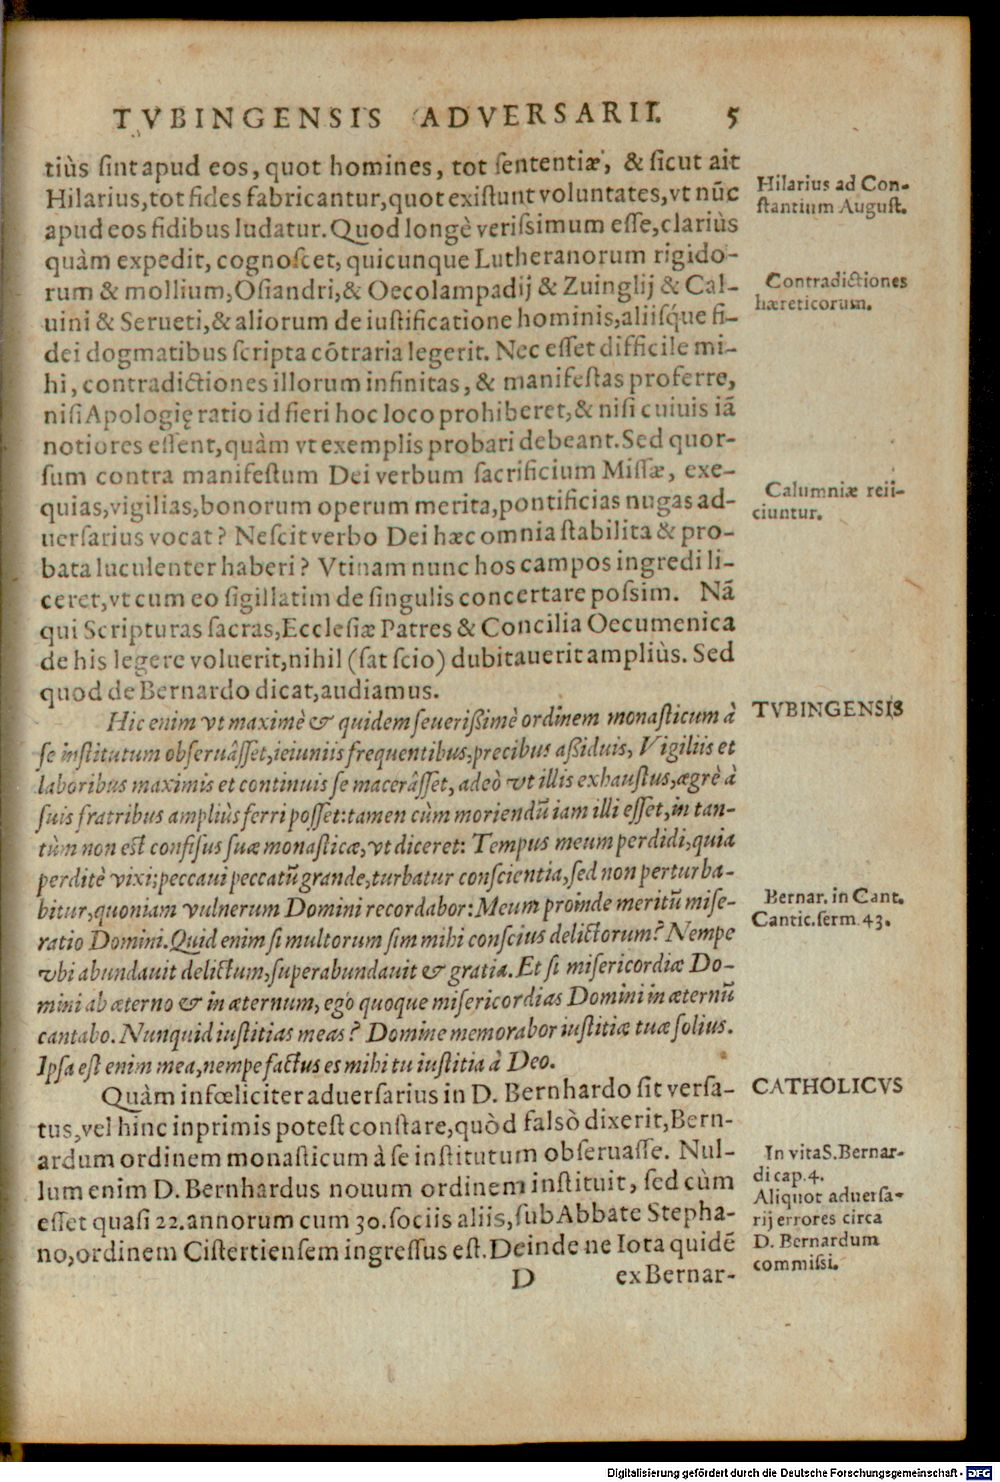 TVBINGENSIS ADVERSARII. 5
tiùs sint apud eos, quot homines, tot sententiæ, & sicut ait
Hilarius, tot fides fabricantur, quot existunt voluntates, vt nũc
apud eos fidibus ludatur. Quod longè verissimum esse, clariùs
quàm expedit, cognoscet, quicunque Lutheranorum rigido-
rum & mollium, Osiandri, & Oecolampadij & Zuinglij & Cal-
uini & Serueti, & aliorum de iustificatione hominis, aliisq́ue fi-
dei dogmatibus scripta cõtraria legerit. Nec esset difficile mi-
hi, contradictiones illorum infinitas, & manifestas proferre,
nisi Apologię ratio id fieri hoc loco prohiberet, & nisi cuiuis iã
notiores essent, quàm vt exemplis probari debeant. Sed quor-
sum contra manifestum Dei verbum sacrificium Missæ, exe-
quias, vigilias, bonorum operum merita, pontificias nugas ad-
uersarius vocat? Nescit verbo Dei hæc omnia stabilita & pro-
bata luculenter haberi? Vtinam nunc hos campos ingredi li-
ceret, vt cum eo sigillatim de singulis concertare possim. Nã
qui Scripturas sacras, Ecclesiæ Patres & Concilia Oecumenica
de his legere voluerit, nihil (sat scio) dubitauerit ampliùs. Sed
quod de Bernardo dicat, audiamus.
Hilarius ad Con-
stantium August.
Contradictiones
hæreticorum.
Calumniæ reii-
ciuntur.
TVBINGENSIS
Hic enim vt maximè & quidem seuerißimè ordinem monasticum à
se institutum obseruâsset, ieiuniis frequentibus, precibus aßiduis, Vigiliis et
laboribus maximis et continuis se macerâsset, adeò vt illis exhaustus, ægrè à
suis fratribus ampliùs ferri posset: tamen cùm moriendũ iam illi esset, in tan-
tùm non est confisus suæ monasticæ, vt diceret: Tempus meum perdidi, quia
perditè vixi; peccaui peccatũ grande, turbatur conscientia, sed non perturba-
bitur, quoniam vulnerum Domini recordabor: Meum proinde meritũ mise-
ratio Domini. Quid enim si multorum sim mihi conscius delictorum? Nempe
vbi abundauit delictum, superabundauit & gratia. Et si misericordiæ Do-
mini ab æterno & in æternum, ego quoque misericordias Domini in æternũ
cantabo. Nunquid iustitias meas? Domine memorabor iustitiæ tuæ solius.
Ipsa est enim mea, nempe factus es mihi tu iustitia à Deo.
Bernar. in Cant.
Cantic. serm 43.
CATHOLICVS
Quàm infœliciter aduersarius in D. Bernhardo sit versa-
tus, vel hinc inprimis potest constare, quòd falsò dixerit, Bern-
ardum ordinem monasticum à se institutum obseruasse. Nul-
lum enim D. Bernhardus nouum ordinem instituit, sed cùm
esset quasi 22. annorum cum 30. sociis aliis, sub Abbate Stepha-
no, ordinem Cistertiensem ingressus est. Deinde ne Iota quidẽ
In vita S. Bernar-
di cap. 4.
Aliquot aduersa-
rij errores circa
D. Bernardum
commissi.
D ex Bernar-
Digitalisierung gefördert durch die Deutsche Forschungsgemeinschaft - DFG